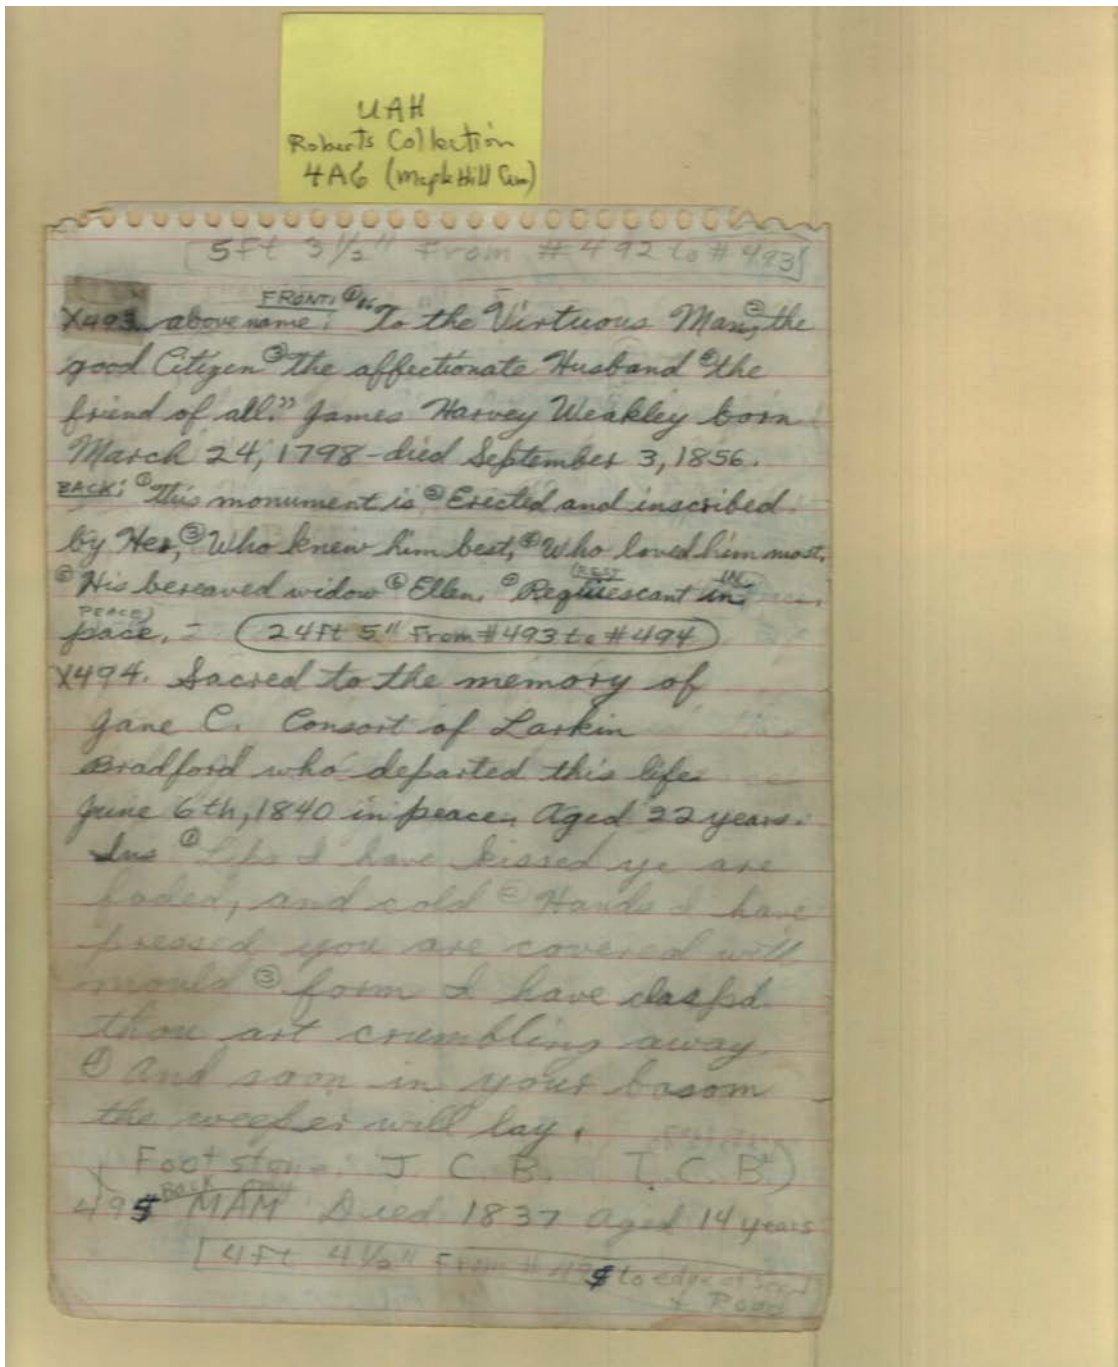 UAH
Roberts Collection
4A6 (Maple Hill Cem)
[5Ft 3 1/2" From #492 to #493]
FRONT: ①
X493 above name: "To the Virtuous Man, ② the
good Citizen ③ the affectionate Husband ④ the
friend of all." James Harvey Weakley born
March 24, 1798 - died September 3, 1856.
BACK: ① This monument is ② Erected and inscribed
by Her, ③ Who knew him best, ④ Who loved him most,
⑤ His bereaved widow ⑥ Ellen. ⑦ Requiescant in
(REST IN
PEACE)
pace. = (24Ft 5" From #493 to #494)
X494. Sacred to the memory of
Jane C. Consort of Larkin
Bradford who departed this life
June 6th, 1840 in peace. Aged 22 years.
Ins ① Lips I have kissed ye are
faded, and cold ② Hands I have
pressed you are covered with
mould ③ form I have claspd
thou art crumbling away
④ And soon in your bosom
the weeper will lay.
Footstone: J. C. B. (I. C. B.)
BACK
495 MAM Died 1837 aged 14 years
[4Ft 4 1/2" From #495 to edge of Sec.
+ Road